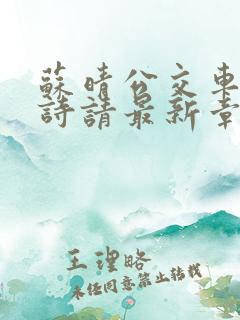 蘇晴公交車
詩請最新章
王理略
未经同意禁止转载